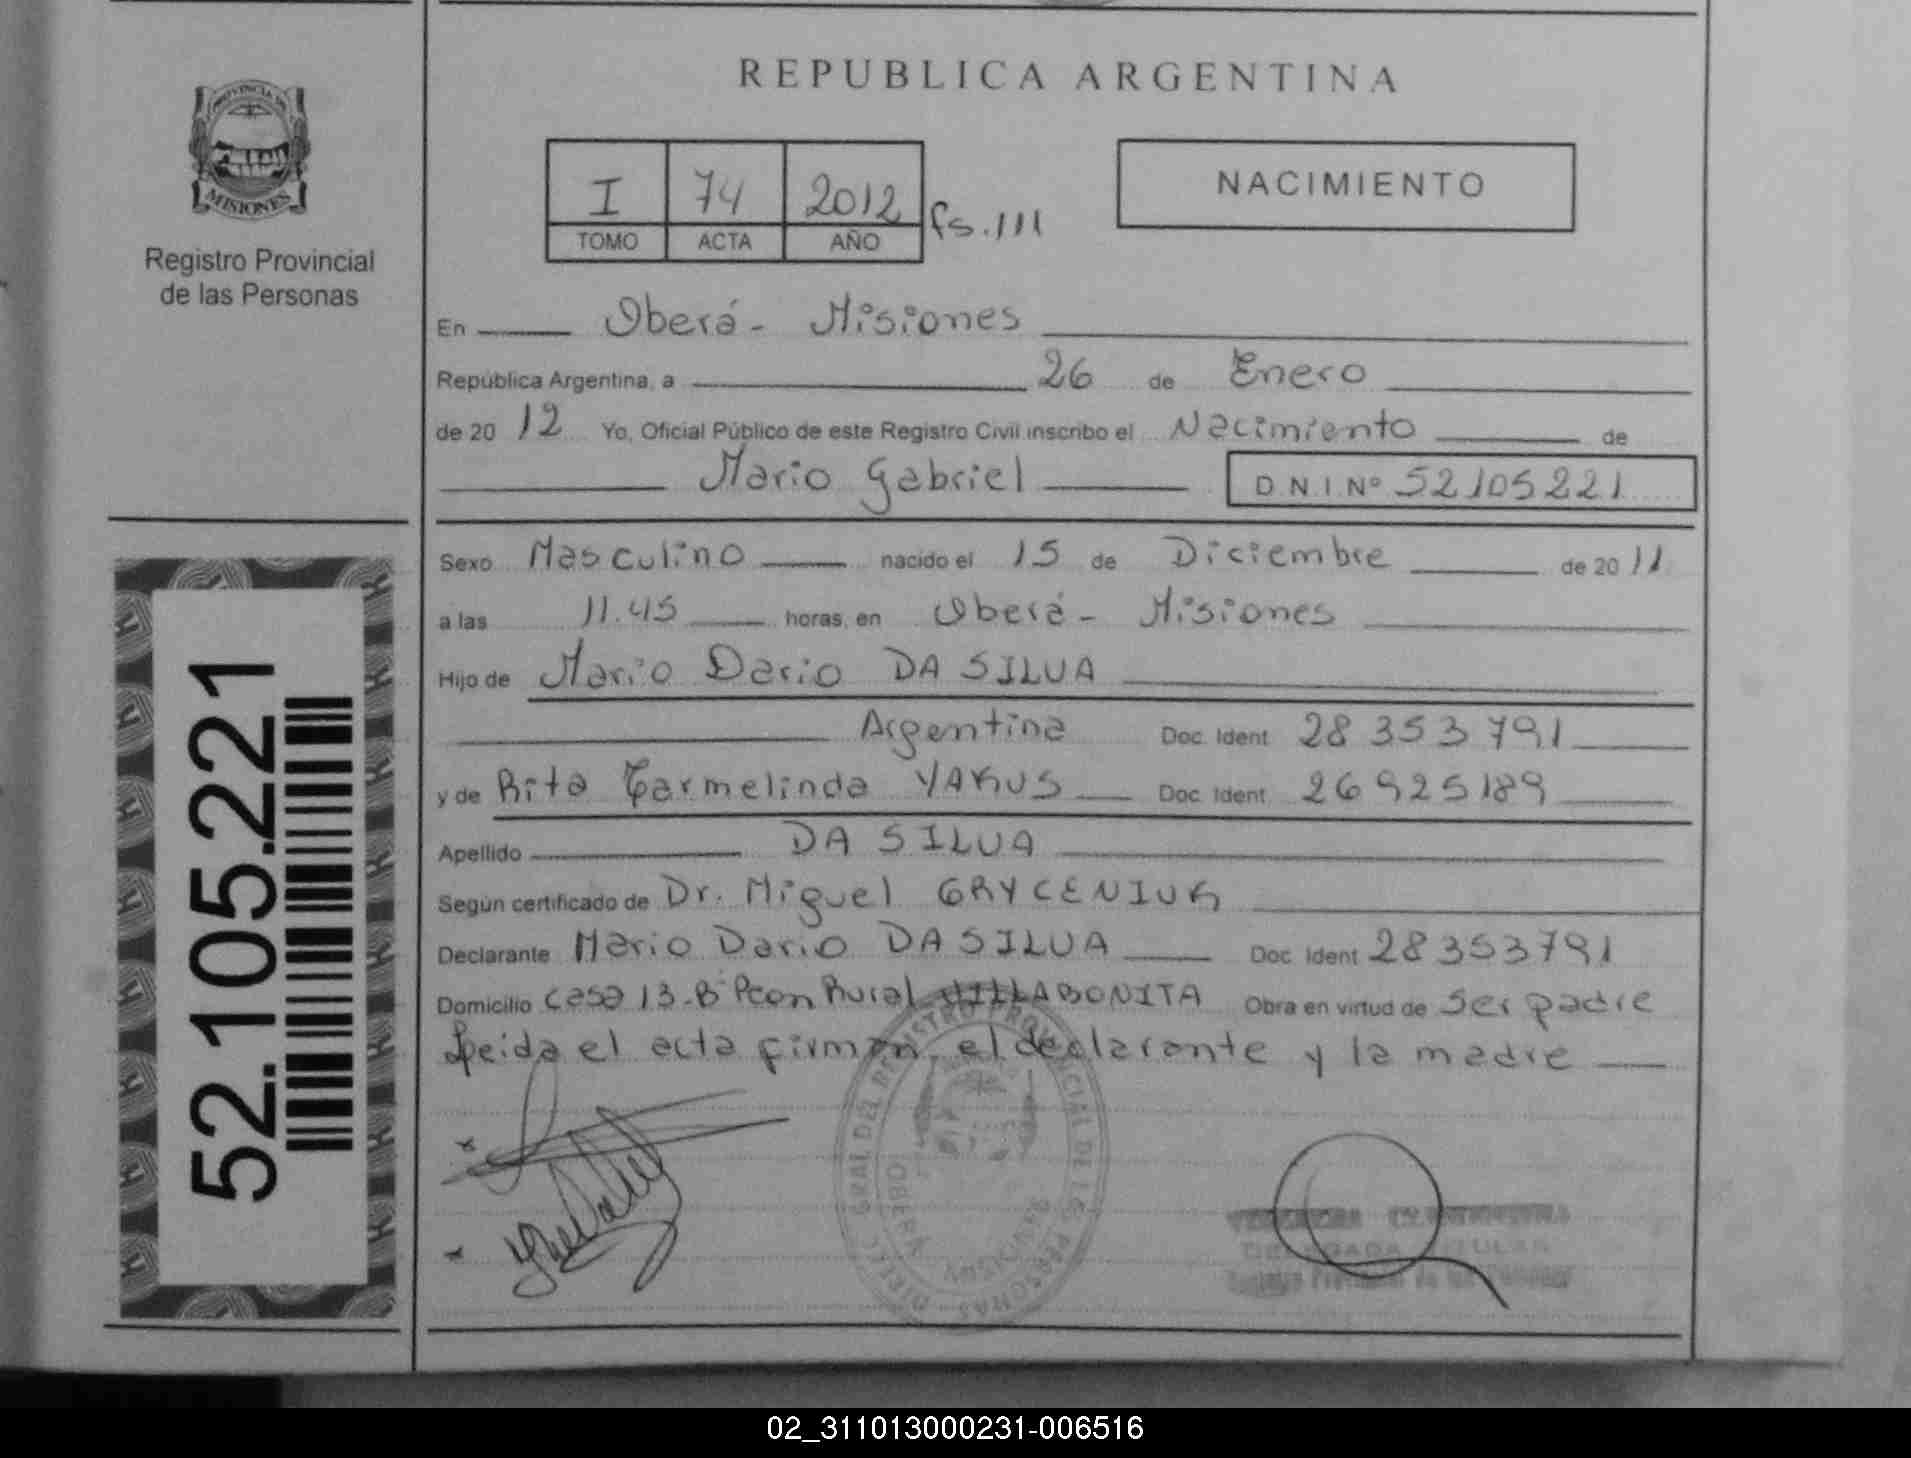 REPUBLICA ARGENTINA
PROVINCIA DE
MISIONES
Registro Provincial
de las Personas
I 74 2012 fs. 111
TOMO ACTA AÑO
NACIMIENTO
En Oberá - Misiones
República Argentina, a 26 de Enero
de 20 12 Yo, Oficial Público de este Registro Civil inscribo el Nacimiento de
Mario Gabriel D.N.I. Nº 52105221
Sexo Masculino nacido el 15 de Diciembre de 20 11
a las 11.45 horas, en Oberá - Misiones
Hijo de Mario Dario DA SILVA
Argentina Doc. Ident. 28 353 791
y de Rita Carmelinda YAKUS Doc. Ident. 26 925 189
Apellido DA SILVA
Según certificado de Dr. Miguel GRYCENIUK
Declarante Mario Dario DA SILVA Doc. Ident. 28353791
Domicilio Casa 13-Bº Peon Rural VILLA BONITA Obra en virtud de Ser padre
Leida el acta firman, el declarante y la madre
52.105.221
DIREC. GRAL DEL REGISTRO PROVINCIAL DE LAS PERSONAS
OBERÁ
MISIONES
DELEGADA TITULAR
Registro Provincial de las Personas
02_311013000231-006516